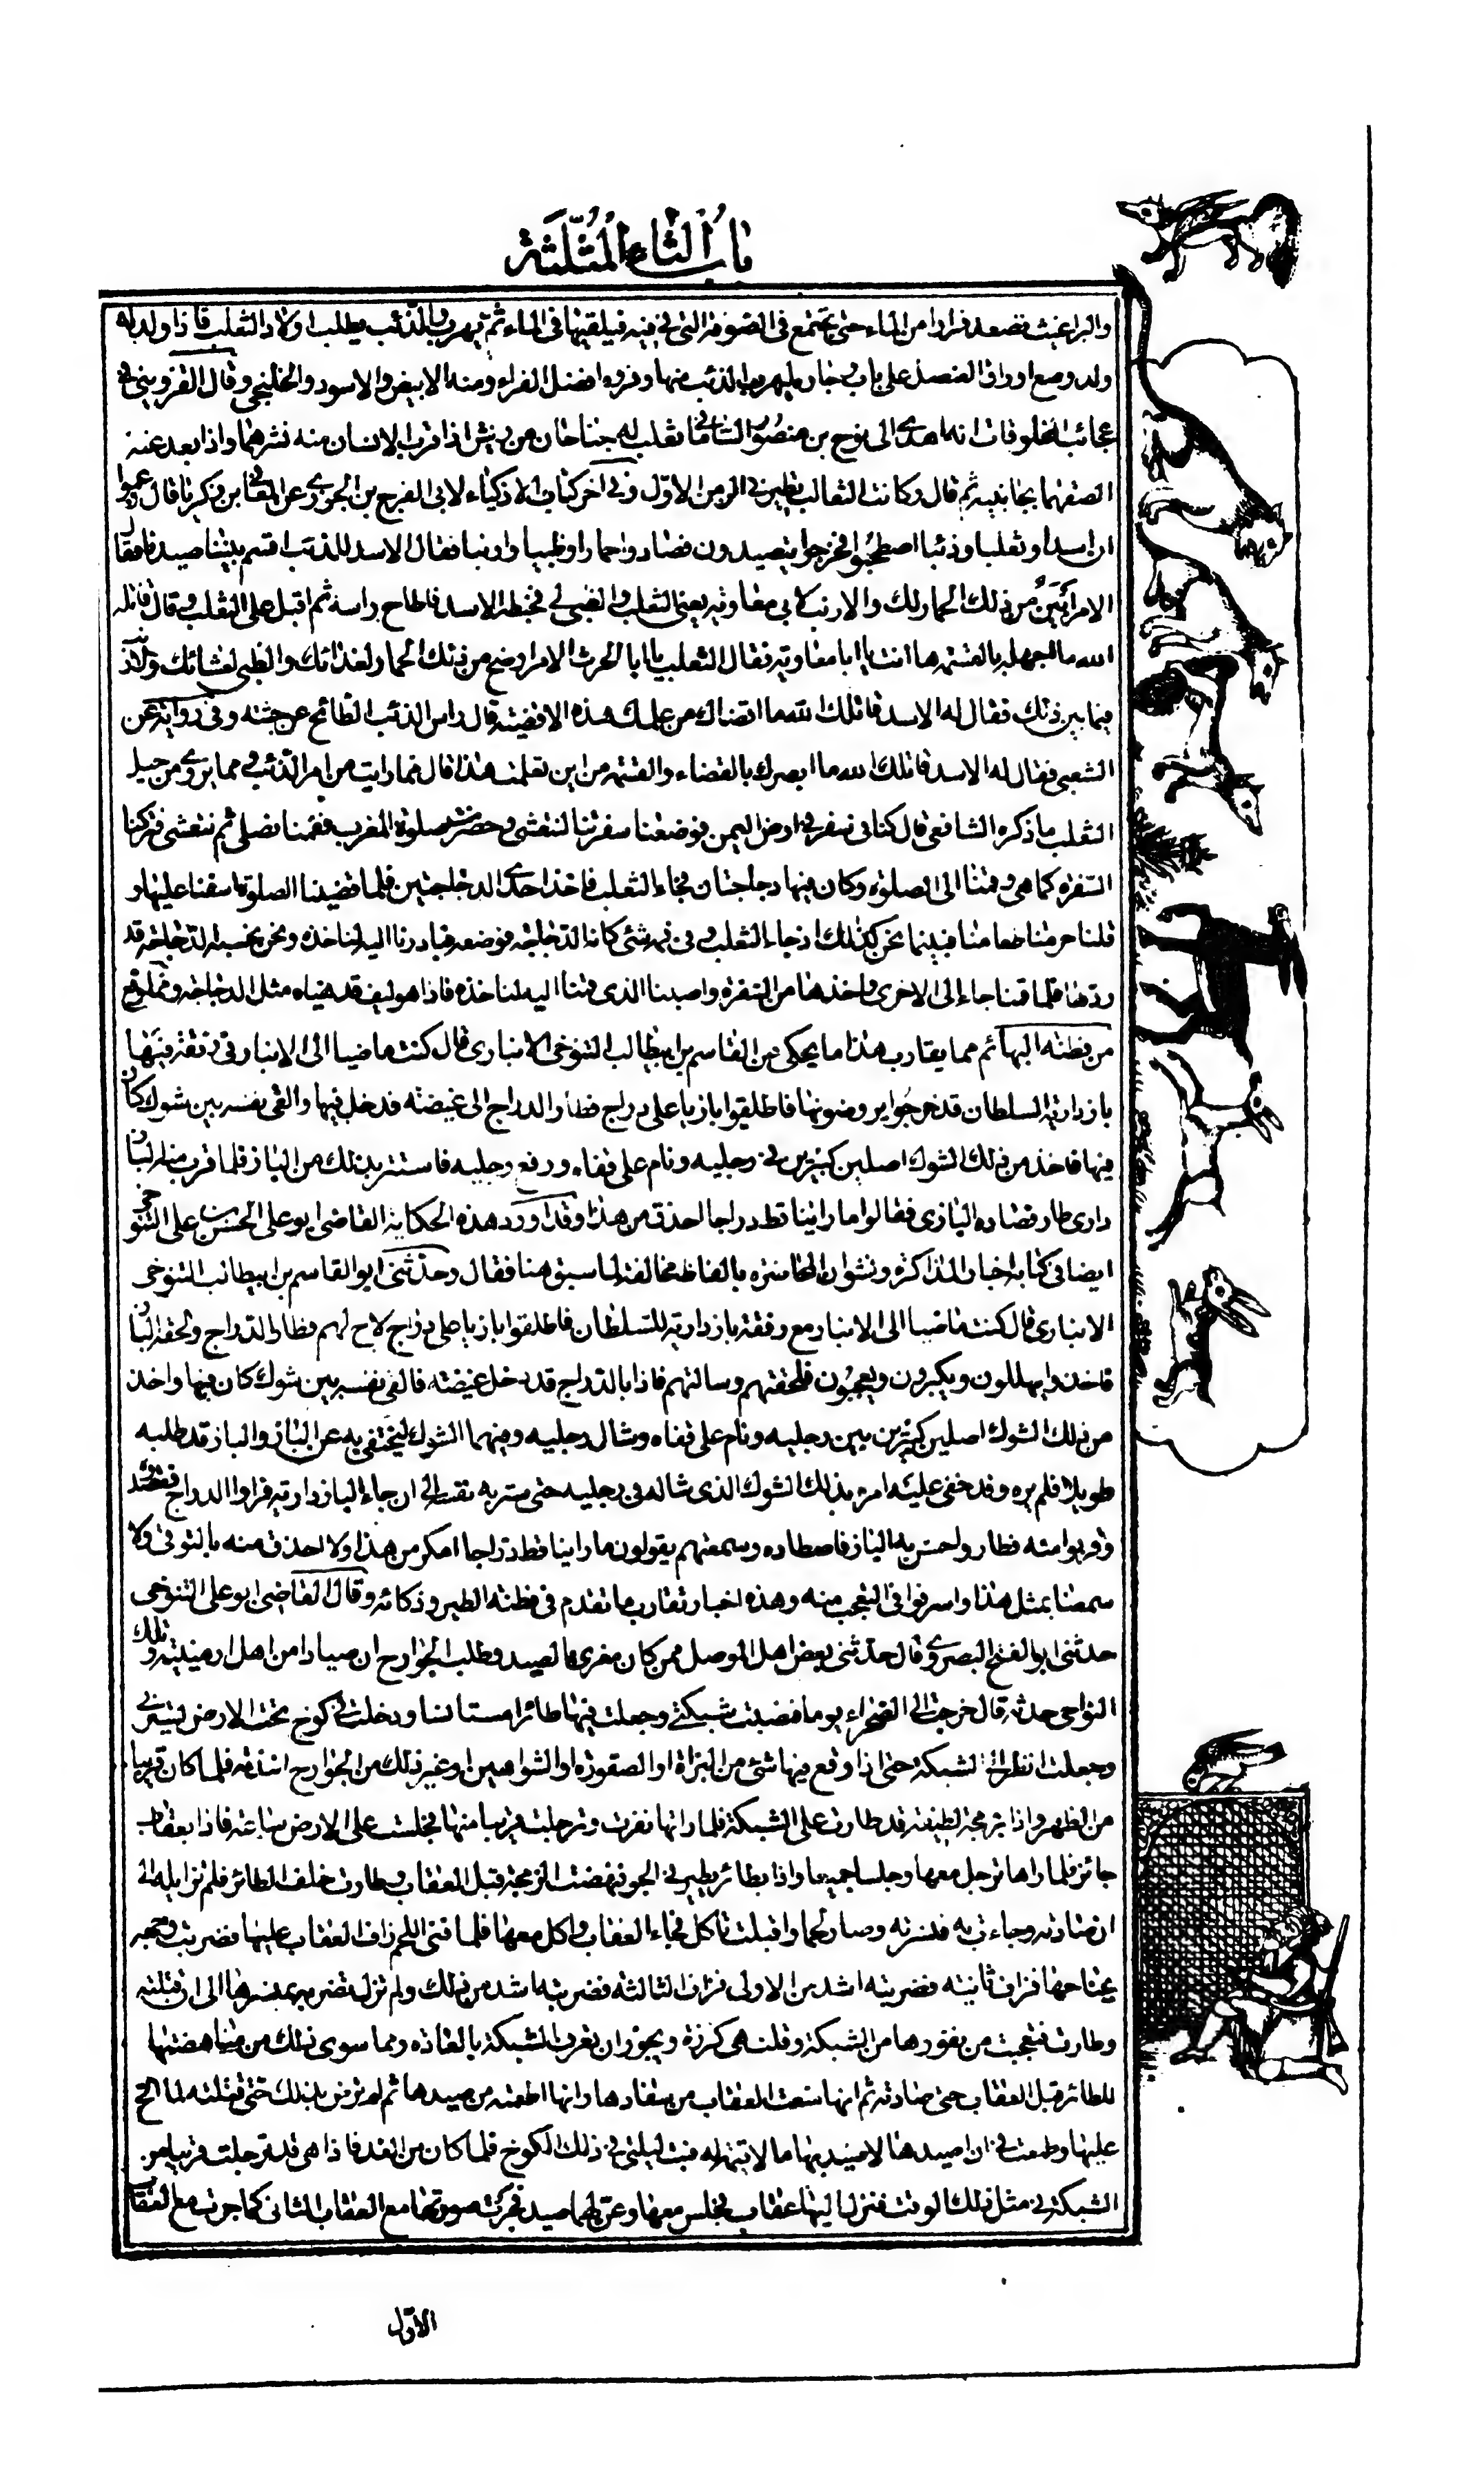 باب الثاء المثلثة
والبراغيث فتصعد فرارا من الماء حتى تجتمع فى الصوفة التى فى فيه فيلقيها فى الماء ثم يهرب والذئب يطلب اولاد الثعلب فاذا ولد له
ولد وضع اوراق العنصل على باب وجاره ليهرب الذئب منها وفروه افضل الفراء ومنه الابيض والاسود والخلنجى وقال القزوينى فى
عجائب المخلوقات انه اهدى الى نوح بن منصور السامانى ثعلب له جناحان من ريش اذا قرب الانسان منه نشرهما واذا بعد عنه
الصقهما بجانبيه ثم قال وكانت الثعالب تطير فى الزمن الاول وفى آخر كتاب الاذكياء لابى الفرج بن الجوزى عن المعافى بن زكريا قال زعموا
ان اسدا وثعلبا وذئبا اصطحبوا فخرجوا يتصيدون فصادوا حمارا وظبيا وارنبا فقال الاسد للذئب اقسم بيننا صيدنا فقال
الامر ابين من ذلك الحمار لك والارنب لابى معاوية يعنى الثعلب والظبى لى فخبطه الاسد فاطاح براسه ثم اقبل على الثعلب وقال قاتله
الله ما اجهله بالقسمة هات انت يا ابا معاوية فقال الثعلب يا ابا الحرث الامر اوضح من ذلك الحمار لغدائك والظبى لعشائك وتلذذ بالارنب
فيما بين ذلك فقال له الاسد قاتلك الله ما اقضاك من علمك هذه الاقضية قال راس الذئب الطائح عن جثته وفى رواية عن
الشعبى فقال له الاسد قاتلك الله ما ابصرك بالقضاء والقسمة من اين تعلمت هذا قال مما رايت من امر الذئب ومما يروى من حيل
الثعلب ما ذكره الشافعى قال كنا فى سفر فى ارض اليمن فوضعنا سفرتنا لنتعشى وحضرت صلوة المغرب فقمنا نصلى ثم نتعشى فتركنا
السفرة كما هى وقمنا الى الصلوة وكان فيها دجاجتان فجاء الثعلب فاخذ احدى الدجاجتين فلما قضينا الصلوة اسفنا عليها و
قلنا حرمنا طعامنا فبينما نحن كذلك اذ جاء الثعلب وفى فمه شئى كانه الدجاجة فوضعه فبادرنا اليه لناخذه ونحن نحسبه الدجاجة قد
ردها فلما قمنا جاء الى الاخرى واخذها من السفرة واصبنا الذى قمنا اليه لناخذه فاذا هو ليف قد هياه مثل الدجاجة ومما وقع
من فطنة البهائم مما يقارب هذا ما يحكى عن القاسم بن ابيطالب التنوخى الانبارى قال كنت ماضيا الى الانبار فى رفقة فيها
بازدارية السلطان قد خرجوا يروضونها فاطلقوا بازيا على دراج فطار الدراج الى غيضة فدخل فيها والقى نفسه بين شوك كان
فيها فاخذ من ذلك الشوك اصلين كبيرين فى رجليه ونام على قفاه ورفع رجليه فاستتر بذلك من الباز فلما قرب منه الباز
دارى طار فصاده البازى فقالوا ما راينا قط دراجا احذق من هذا وقد اورد هذه الحكاية القاضى ابو على الحسن بن على التنوخى
ايضا فى كتابه اخبار المذاكرة ونشوان المحاضرة بالفاظ مخالفة لما سبق هنا فقال وحدثنى ابو القاسم بن ابيطالب التنوخى
الانبارى قال كنت ماضيا الى الانبار مع رفقة بازدارية للسلطان فاطلقوا بازيا على دراج لاح لهم فطار الدراج ولحقه الباز
فاخذوا يهللون ويكبرون ويعجبون فلحقتهم وسالتهم فاذا بالدراج قد دخل غيضة فالقى نفسه بين شوك كان فيها واخذ
من ذلك الشوك اصلين كبيرين بين رجليه ونام على قفاه وشال رجليه وفيهما الشوك ليختفى به عن الباز والباز قد طلبه
طويلا فلم يره وقد خفى عليه امره بذلك الشوك الذى شاله فى رجليه حتى ستر به نفسه الى ان جاء البازدارية فراوا الدراج فقصده
وقربوا منه فطار ولحس به الباز فاصطاده وسمعتهم يقولون ما راينا قط دراجا امكر من هذا ولا احذق منه بالتوقى ولا
سمعنا بمثل هذا واسرفوا فى التعجب منه وهذه اخبار تقارب ما تقدم فى فطنة الطير وذكائه وقال القاضى ابو على التنوخى
حدثنى ابو الفتح البصرى قال حدثنى بعض اهل الموصل ممن كان مغرى بالصيد وطلب الجوارح ان صيادا من اهل ارمينية وتلك
النواحى حدثه قال خرجت الى الصحراء يوما فنصبت شبكتى وجعلت فيها طائرا مستانسا ودخلت فى كوخ تحت الارض يسترنى
وجعلت انظر الى الشبكة حتى اذا وقع فيها شئى من البزاة او الصقورة او الشواهين او غير ذلك من الجوارح اخذته فلما كان قريبا
من الظهر واذا بزمجة لطيفة قد طارت على الشبكة فلما راتها نفرت وترجلت قريبا منها فجلست على الارض ساعة فاذا بعقاب
جائز فلما راها ترجل معها وجلسا جميعا واذا بطائر يطير فى الجو فنهضت الزمجة قبل العقاب وطارت خلف الطائر فلم تزايله الى
ان صادته وجاءت به فنسرته وصار لحما واقبلت تاكل فجاء العقاب واكل معها فلما فنى اللحم زاف العقاب عليها فضربت وجهه
بجناحها فزاف ثانية فضربته اشد من الاولى فزاف الثالثة فضربته اشد من ذلك ولم تزل تضربه بمنسرها الى ان قتلته
وطارت فتعجبت من نفورها من الشبكة وقلت هى كرزة ويجوز ان تعرف الشبكة بالعادة وما سوى ذلك من مناهضتها
للطائر قبل العقاب حتى صادته ثم انها منعت العقاب من سفادها وانها اطعمته من صيدها ثم لم ترض بذلك حتى قتلته لما الح
عليها وطمعت فى ان اصيدها لاصيد بها ما لا قيمة له فبت ليلتى فى ذلك الكوخ فلما كان من الغد فاذا هى قد ترجلت قريبا من
الشبكة فى مثل ذلك الوقت فنزل اليها عقاب فجلس معها وعن لهما صيد فجرت صورتها مع العقاب الثانى كما جرت مع العقاب
الاول